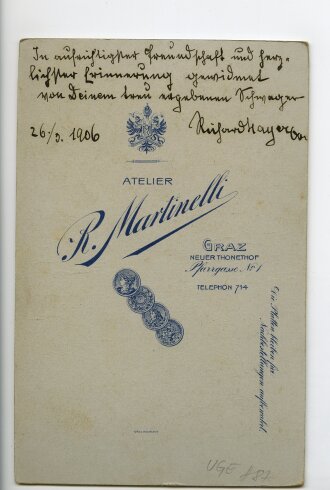 In aufrichtigster Freundschaft und herz-
lichster Erinnerung gewidmet
von Deinem treu ergebenen Schwager
26./3. 1906 Richard Mayer
ATELIER
R. Martinelli
GRAZ
NEUER THONETHOF
Pfarrgasse No 1
TELEPHON 714
Die Platten bleiben für
Nachbestellungen aufbewahrt.
UGE 882